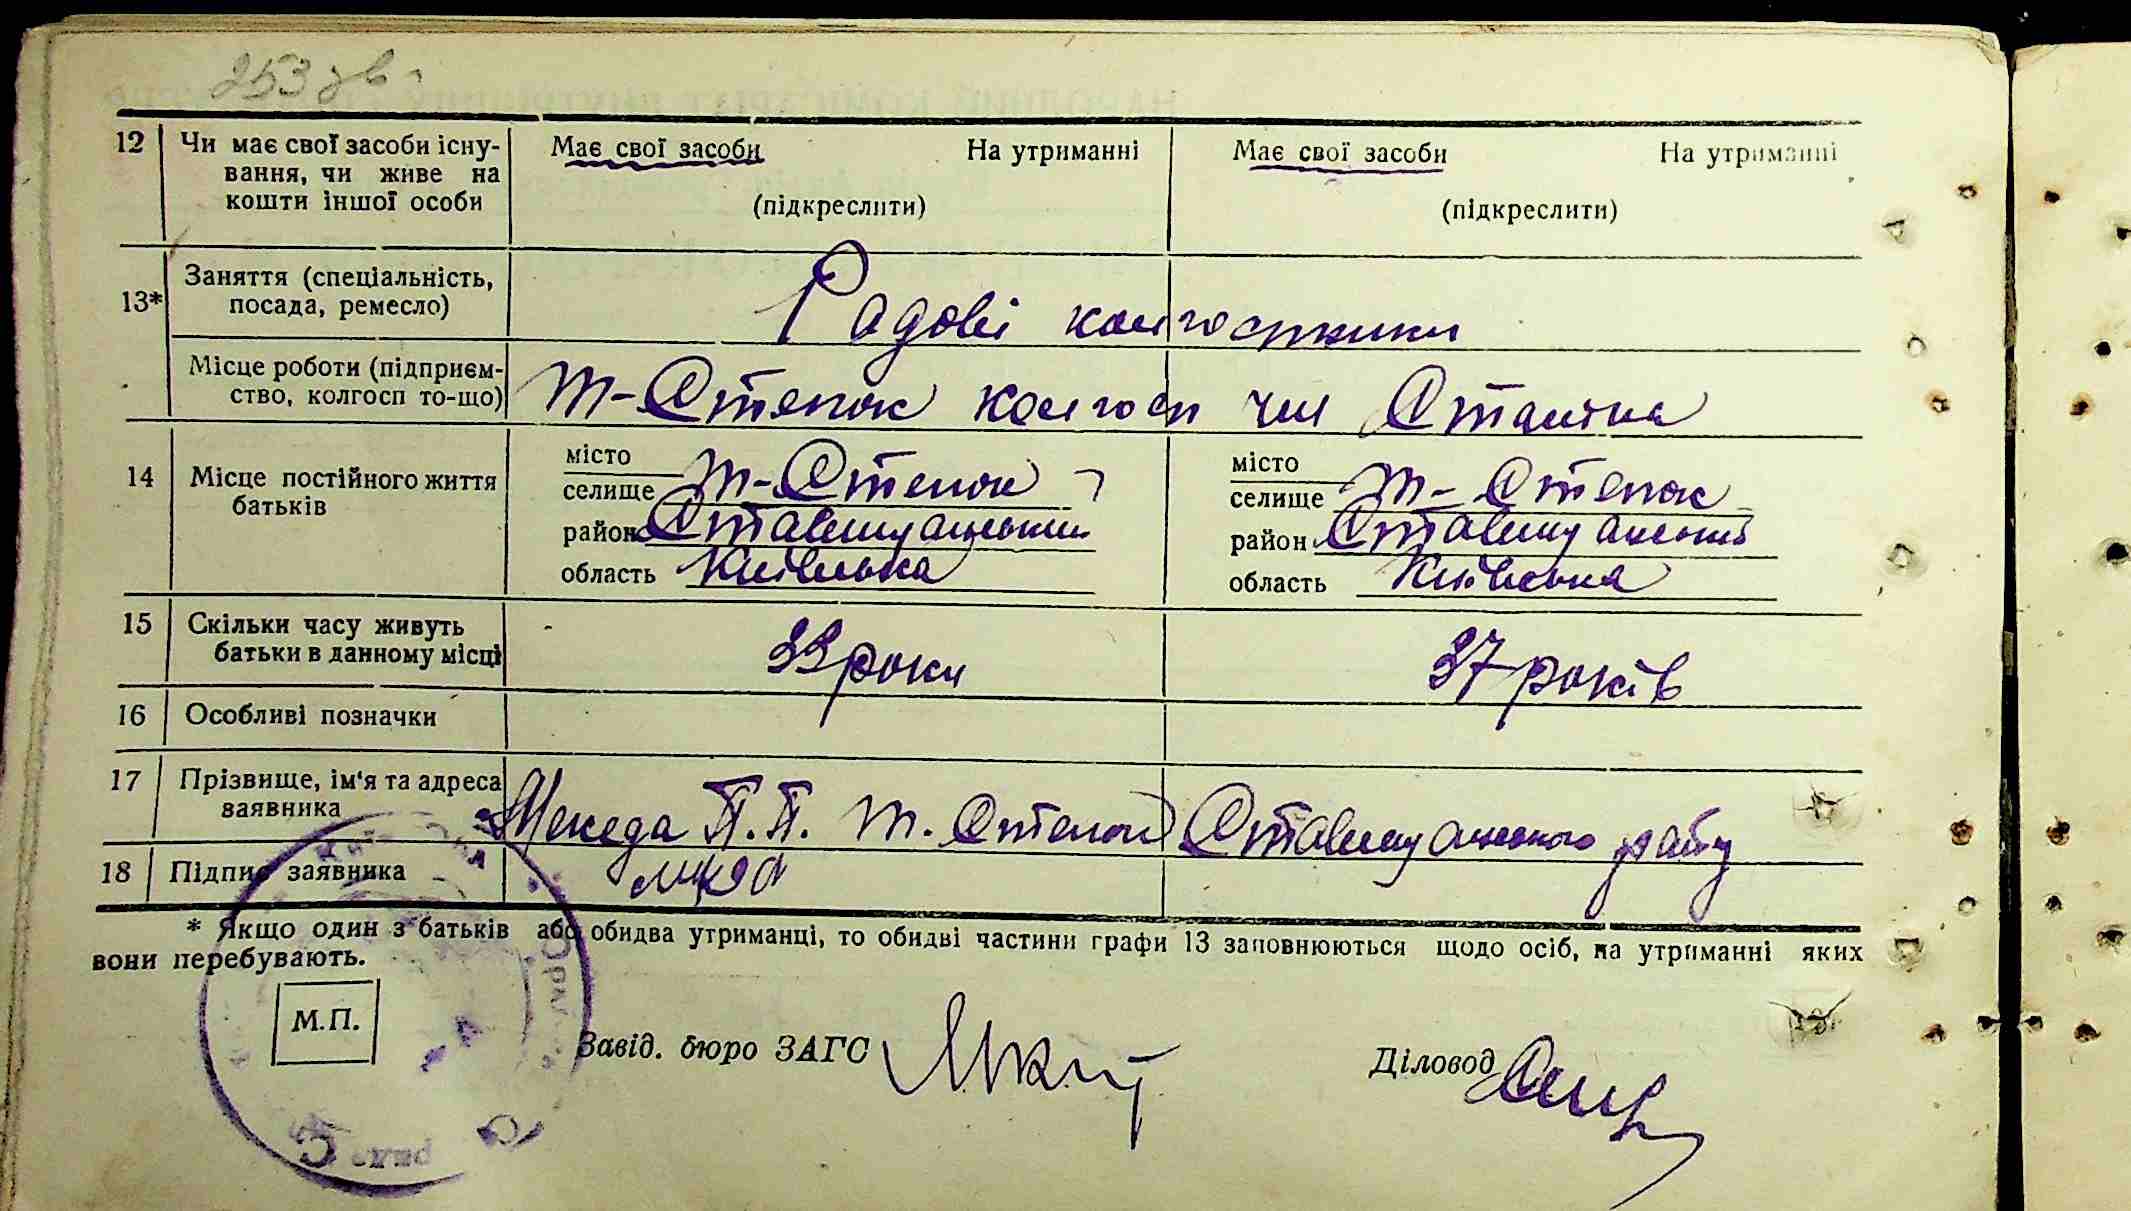 253 зв.
12 Чи має свої засоби існу- Має свої засоби На утриманні Має свої засоби На утриманні
вання, чи живе на
кошти іншої особи (підкреслити) (підкреслити)
13* Заняття (спеціальність,
посада, ремесло) Радові колгоспники
Місце роботи (підприєм-
ство, колгосп то-що) Т-Степок колгосп ім Сталіна
14 Місце постійного життя
батьків
місто місто
селище Т-Степок селище Т-Степок
район Ставищанський район Ставищанський
область Київська область Київська
15 Скільки часу живуть
батьки в данному місці 33 роки 37 років
16 Особливі позначки
17 Прізвище, ім'я та адреса
заявника Мекеда П.П. Т. Степок Ставищанського райу
18 Підпис заявника
* Якщо один з батьків або обидва утриманці, то обидві частини графи 13 заповнюються щодо осіб, на утриманні яких
вони перебувають.
М.П.
Завід. бюро ЗАГС Діловод